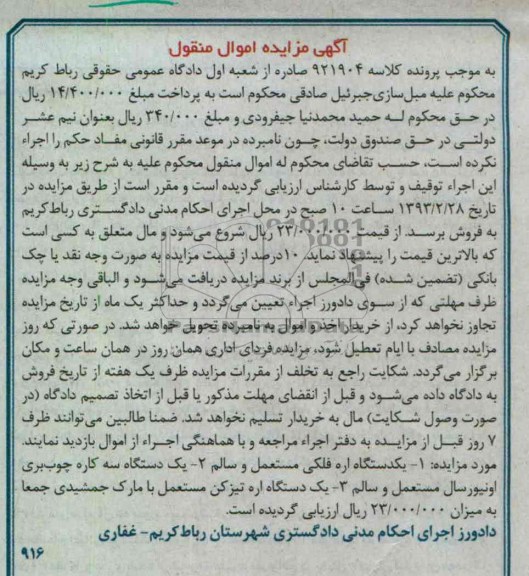 آگهی مزایده اموال منقول
به موجب پرونده کلاسه ۹۲۱۹۰۴ صادره از شعبه اول دادگاه عمومی حقوقی رباط کریم
محکوم علیه مبل‌سازی‌جبرئیل صادقی محکوم است به پرداخت مبلغ ۱۴/۴۰۰/۰۰۰ ریال
در حق محکوم لـه حمید محمدنیا جیفرودی و مبلغ ۳۴۰/۰۰۰ ریال بعنوان نیم عشر
دولتی در حق صندوق دولت، چون نامبرده در موعد مقرر قانونی مفـاد حکم را اجراء
نکرده است، حسب تقاضای محکوم له اموال منقول محکوم علیه به شرح زیر به وسیله
این اجراء توقیف و توسط کارشناس ارزیابی گردیده است و مقرر است از طریق مزایده در
تاریخ ۱۳۹۳/۲/۲۸ ساعت ۱۰ صبح در محل اجرای احکام مدنی دادگستری رباط‌کریم
به فروش برسد. از قیمت ۲۳/۰۰۰/۰۰۰ ریال شروع می‌شود و مال متعلق به کسی است
که بالاترین قیمت را پیشنهاد نماید. ۱۰درصد از قیمت مزایده به صورت وجه نقد یا چک
بانکی (تضمین شده) فی‌المجلس از برنده مزایده دریافت می‌شود و الباقی وجه مزایده
ظرف مهلتی که از سوی دادورز اجراء تعیین می‌گردد و حداکثر یک ماه از تاریخ مزایده
تجاوز نخواهد کرد، از خریدار اخذ و اموال به نامبرده تحویل خواهد شد. در صورتی که روز
مزایده مصادف با ایام تعطیل شود، مزایده فردای اداری همان روز در همان ساعت و مکان
برگزار می‌گردد. شکایت راجع به تخلف از مقررات مزایده ظرف یک هفته از تاریخ فروش
به دادگاه داده می‌شود و قبل از انقضای مهلت مذکور یا قبل از اتخاذ تصمیم دادگاه (در
صورت وصول شکایت) مال به خریدار تسلیم نخواهد شد. ضمنا طالبین می‌توانند ظرف
۷ روز قبـل از مزایـده به دفتر اجراء مراجعه و با هماهنگی اجـراء از اموال بازدید نمایند.
مورد مزایده: ۱- یکدستگاه اره فلکی مستعمل و سالم ۲- یک دستگاه سه کاره چوب‌بری
اونیورسال مستعمل و سالم ۳- یک دستگاه اره تیزکن مستعمل با مارک جمشیدی جمعا
به میزان ۲۳/۰۰۰/۰۰۰ ریال ارزیابی گردیده است.
دادورز اجرای احکام مدنی دادگستری شهرستان رباط‌کریم- غفاری
۹۱۶